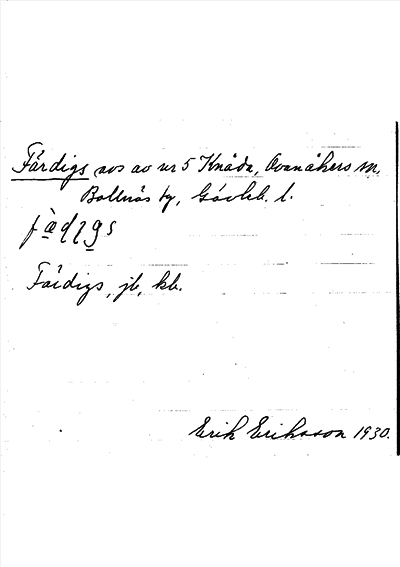 Färdigs avs av nr 5 Knåda, Ovanåkers sn,
Bollnäs tg, Gävleb. l.
Färdigs, jb, kb.
Erik Eriksson 1930.